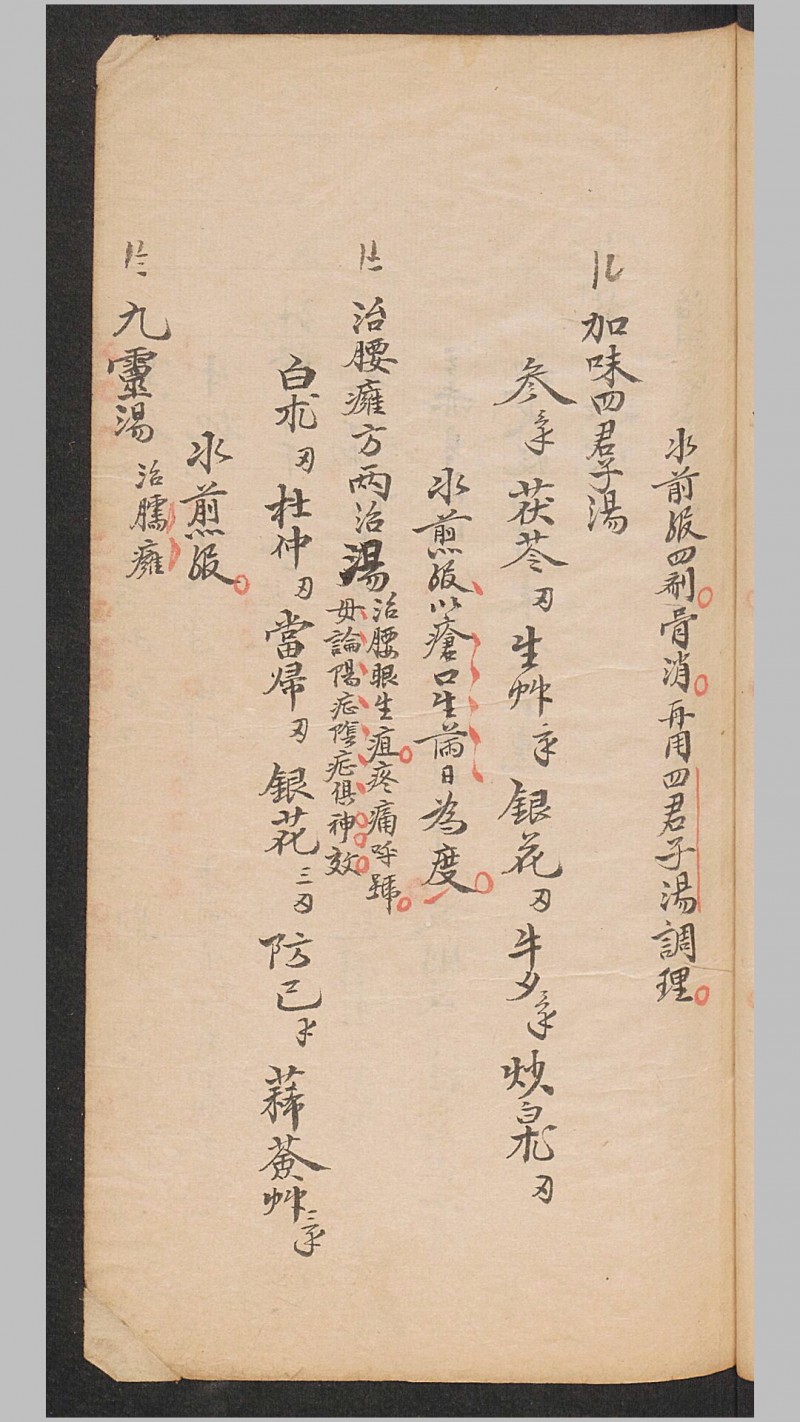 水前服四剤骨消再用四君子湯調理
加味四君子湯
参 茯苓刄 生艸 銀花刄 牛夕 炒白朮刄
水煎服以瘡口生滿日為度
治腰癰方兩治湯
治腰眼生疽疼痛呼號
毋論陽症陰症俱神效
白朮刄 杜仲刄 當帰刄 銀花三刄 防己 豨薟艸三
水煎服
九靈湯 治臑癰